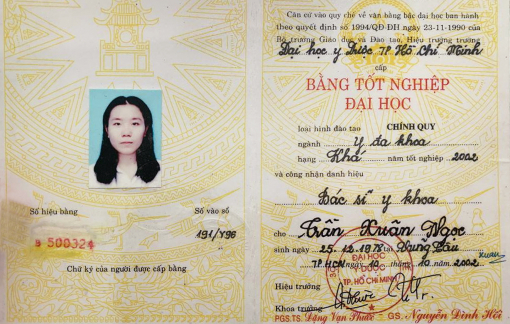 Số hiệu bằng
Số vào sổ
B 500324
191/Y96
Chữ ký của người được cấp bằng
Căn cứ vào quy chế về văn bằng bậc đại học ban hành
theo quyết định số 1994/QĐ-ĐH ngày 23-11-1990 của
Bộ trưởng Giáo dục và Đào tạo, Hiệu trưởng trường
Đại học y Dược TP Hồ Chí Minh
cấp
BẰNG TỐT NGHIỆP
ĐẠI HỌC
loại hình đào tạo CHÍNH QUY
ngành Y đa khoa
hạng Khá năm tốt nghiệp 2002
và công nhận danh hiệu
Bác sĩ y khoa
cho Trần Xuân Ngọc
sinh ngày 25.12.1978 tại Vũng Tàu
TP.HCM ngày 10 tháng 10 năm 2002
Hiệu trưởng
ĐẠI HỌC
Y DƯỢC
TP. HỒ CHÍ MINH
Khoa trưởng
PGS.TS. Đặng Vạn Phước - GS. Nguyễn Đình Hối